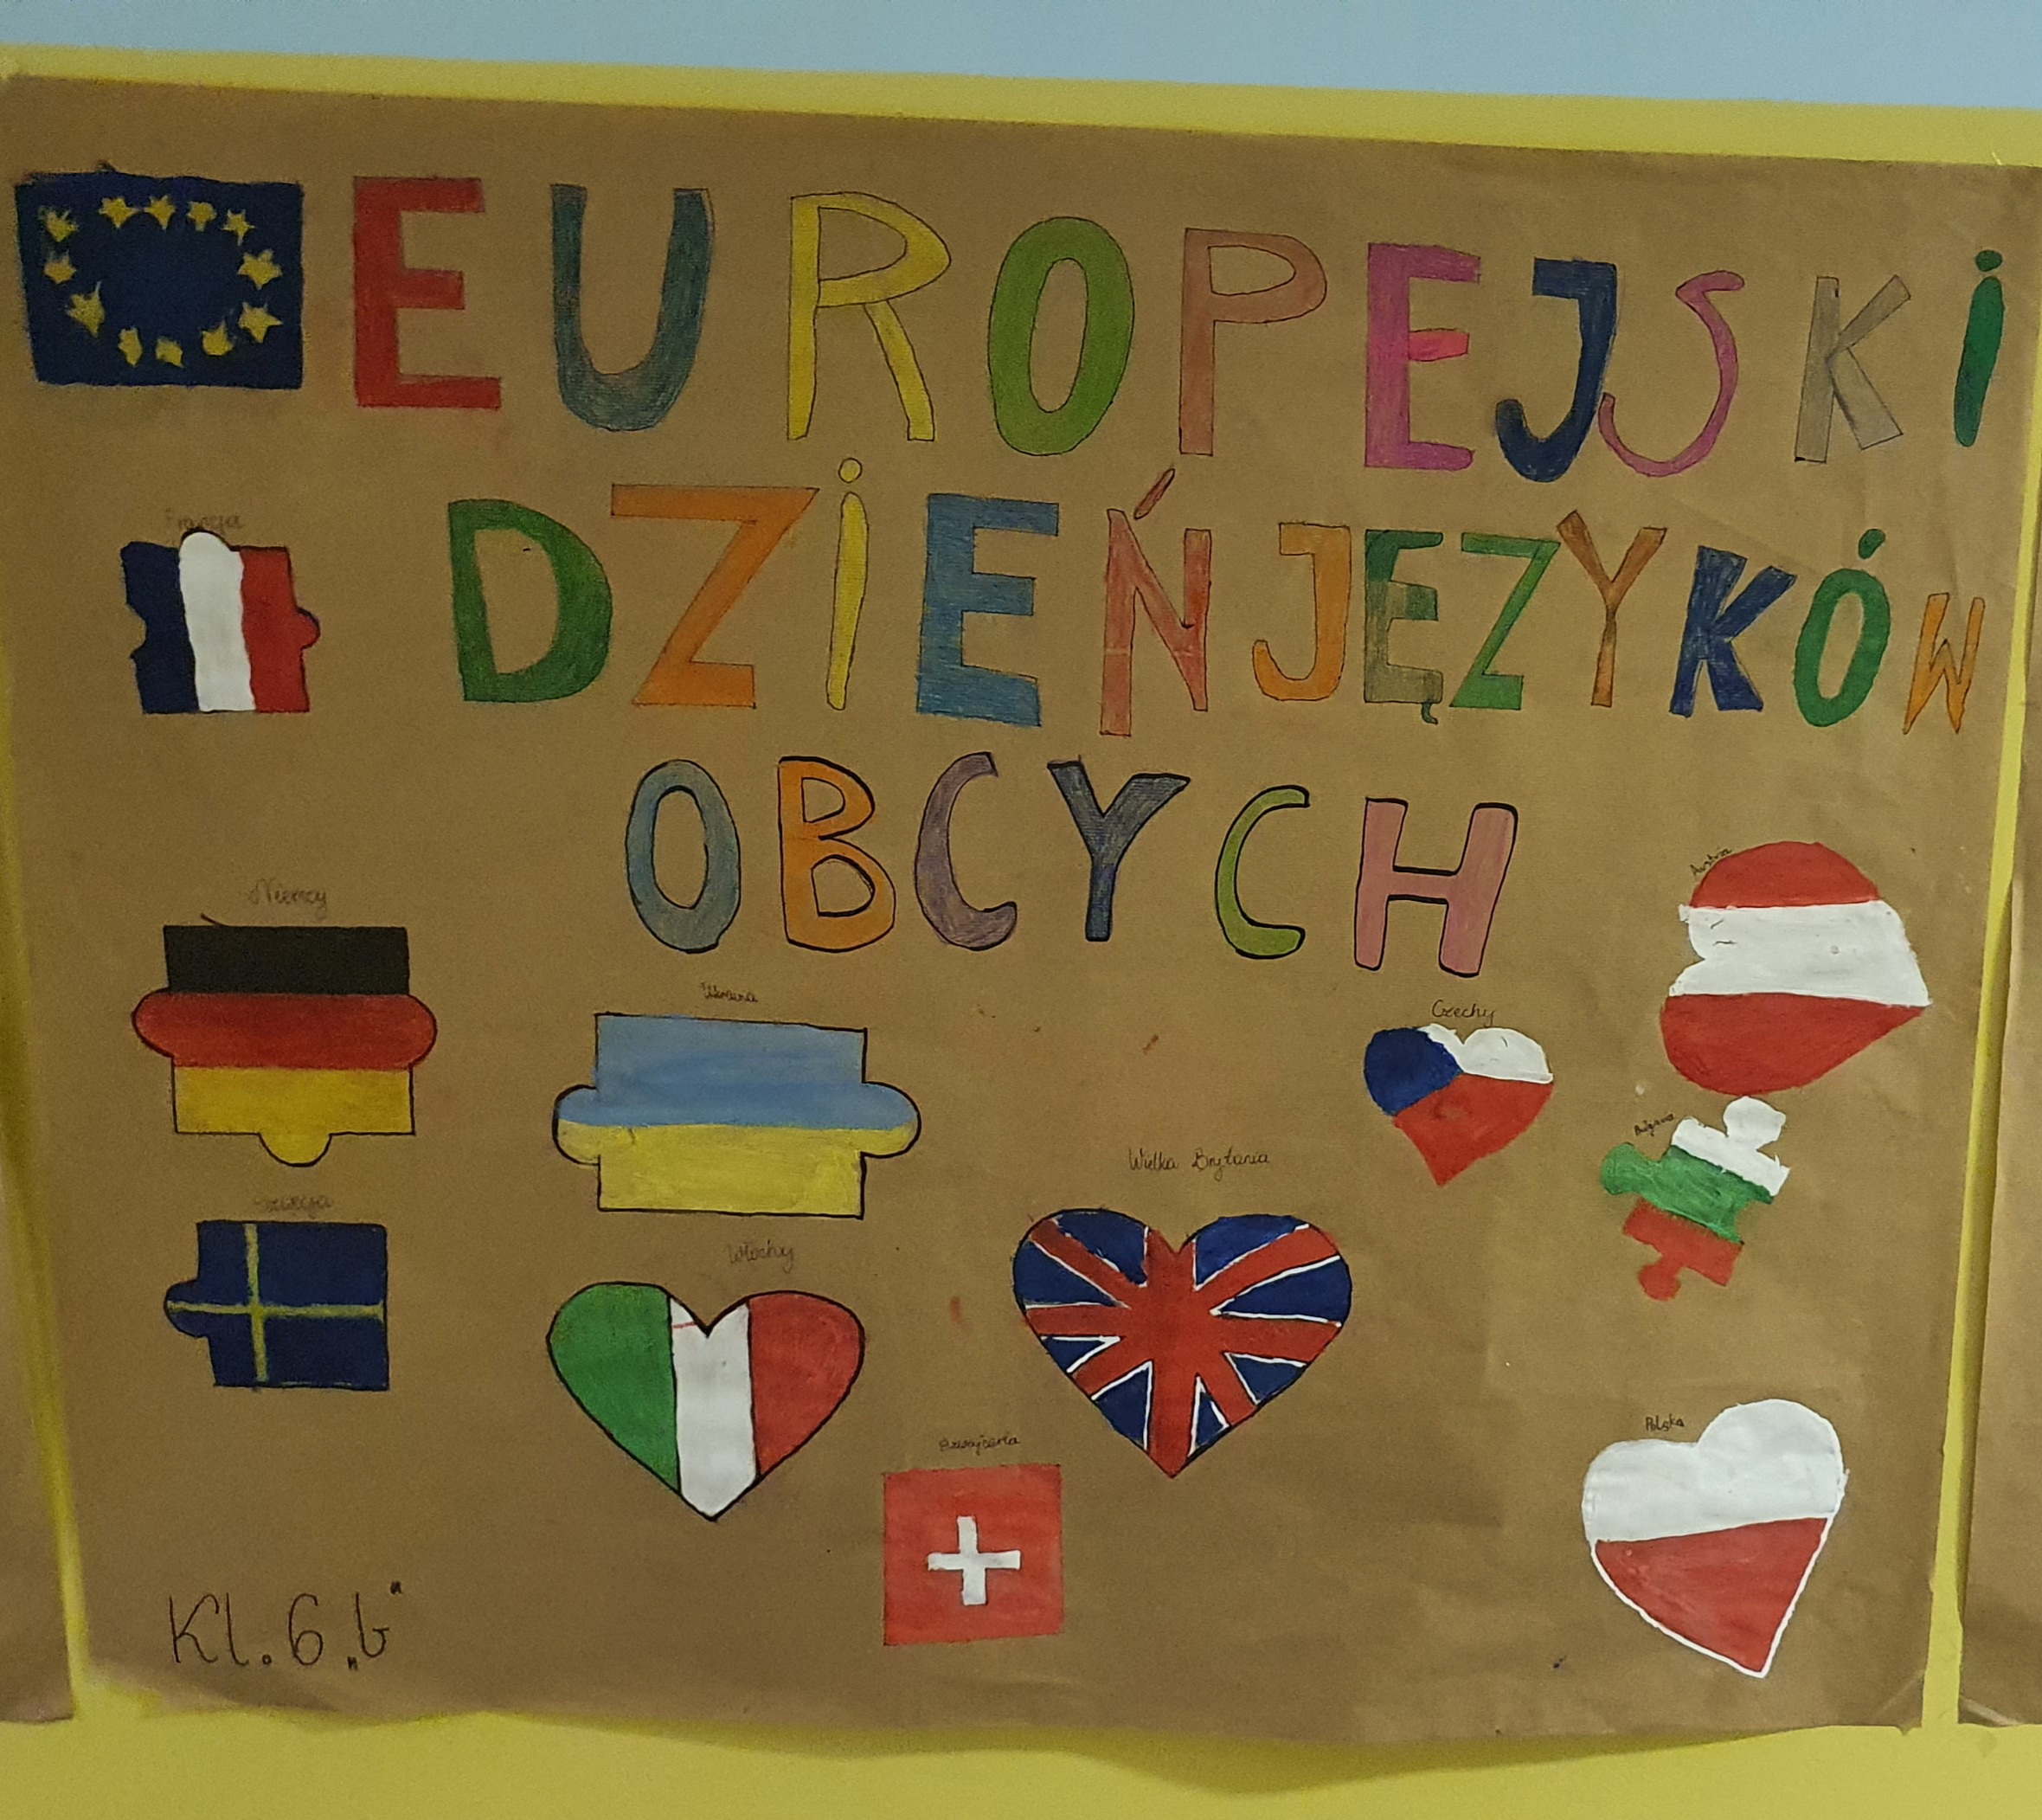 EUROPEJSKi
DZiEŃ JĘZYKÓW
OBCYCH
Francja
Niemcy
Ukraina
Szwecja
Włochy
Wielka Brytania
Szwajcaria
Czechy
Austria
Bułgaria
Polska
Kl. 6 „b"